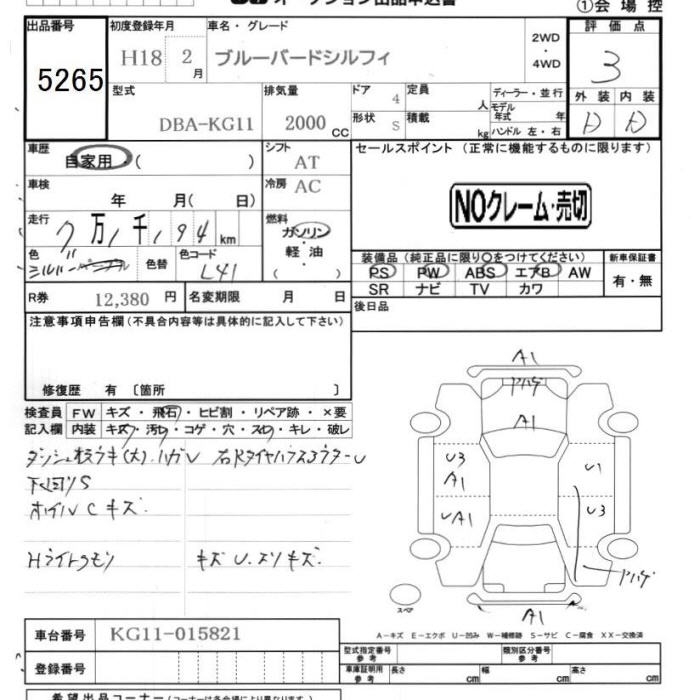 ①会場控
出品番号
5265
初度登録年月
H18 2月
車名・グレード
ブルーバードシルフィ
2WD
・
4WD
評価点
3
外装 内装
D D
型式
DBA-KG11
排気量
2000 CC
ドア 4
形状 S
定員 人
積載 kg
ディーラー・並行
モデル年式 年
ハンドル 左・右
車歴
自家用・( )
シフト
AT
車検
年 月( 日)
冷房 AC
走行
7万1千194km
燃料
ガソリン
・
軽・油
( )
色
シルバー
色替
色コード
L41
R券 12,380円
名変期限 月 日
セールスポイント (正常に機能するものに限ります)
NOクレーム・売切
装備品 (純正品に限り○をつけてください)
PS PW ABS エアB AW
SR ナビ TV カワ
新車保証書
有・無
後日品
注意事項申告欄 (不具合内容等は具体的に記入して下さい)
修復歴 有 〔箇所 〕
検査員記入欄
FW キズ・飛石・ヒビ割・リペア跡・×要
内装 キズ・汚れ・コゲ・穴・スレ・キレ・破レ
下回りS
ホイルCキズ
Hライトクモリ
キズU.スリキズ.
A1
A1
U3
A1
UA1
U1
U3
A1
スペア
A-キズ E-エクボ U-凹み W-補修跡 S-サビ C-腐食 XX-交換済
車台番号 KG11-015821
登録番号
型式指定番号
参考
類別区分番号
参考
車庫証明用
参考
長さ cm 幅 cm 高さ cm